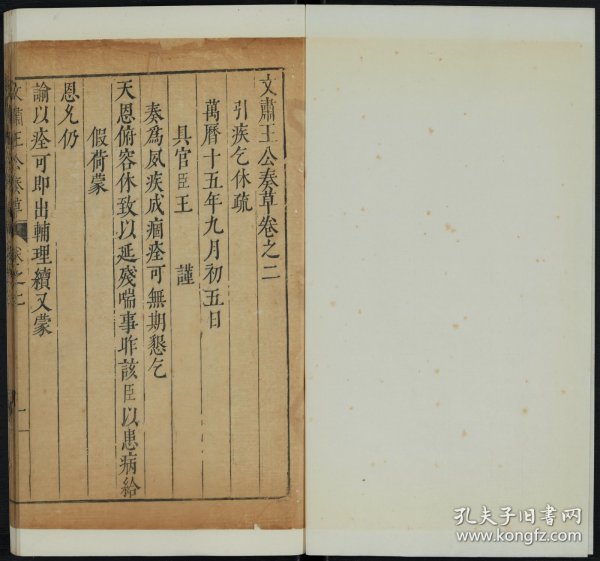 文肅王公奏草卷之二
引疾乞休疏
萬曆十五年九月初五日
具官臣王 謹
奏為夙疾成痼痊可無期懇乞
天恩俯容休致以延殘喘事昨該臣以患病給
假荷蒙
恩允仍
諭以痊可即出輔理續又蒙
文肅王公奏草 卷之二 一
孔夫子旧书网
www.kongfz.com